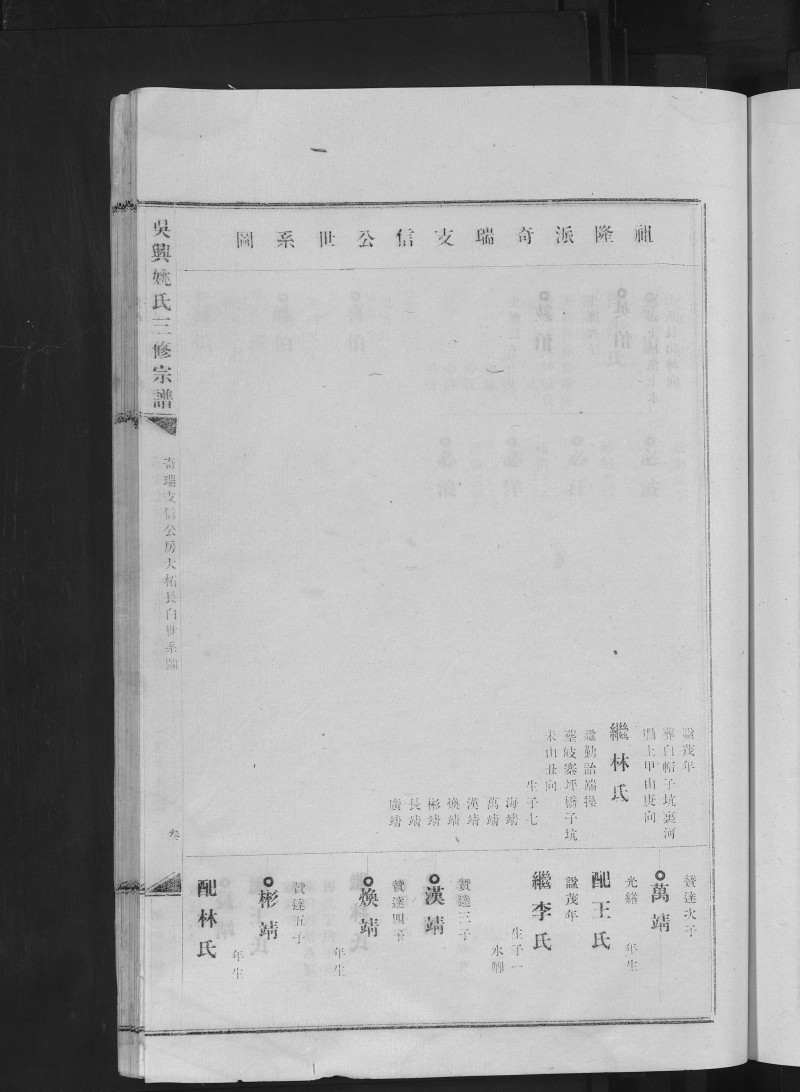 祖隆派奇瑞支信公世系圖
諡茂年
葬白帽子坑裏河
墈上甲山庚向
繼林氏
諡勤詒端操
葬岐寨坪橋子坑
未山丑向
生子七
海靖
萬靖
漢靖
煥靖
彬靖
長靖
廣靖
贊達次子
萬靖
光緒 年生
配王氏
諡茂年
繼李氏
生子一
水腳
贊達三子
漢靖
贊達四子
煥靖
年生
贊達五子
彬靖
年生
配林氏
吳興姚氏三修宗譜
奇瑞支信公房大柘長白世系圖
叁